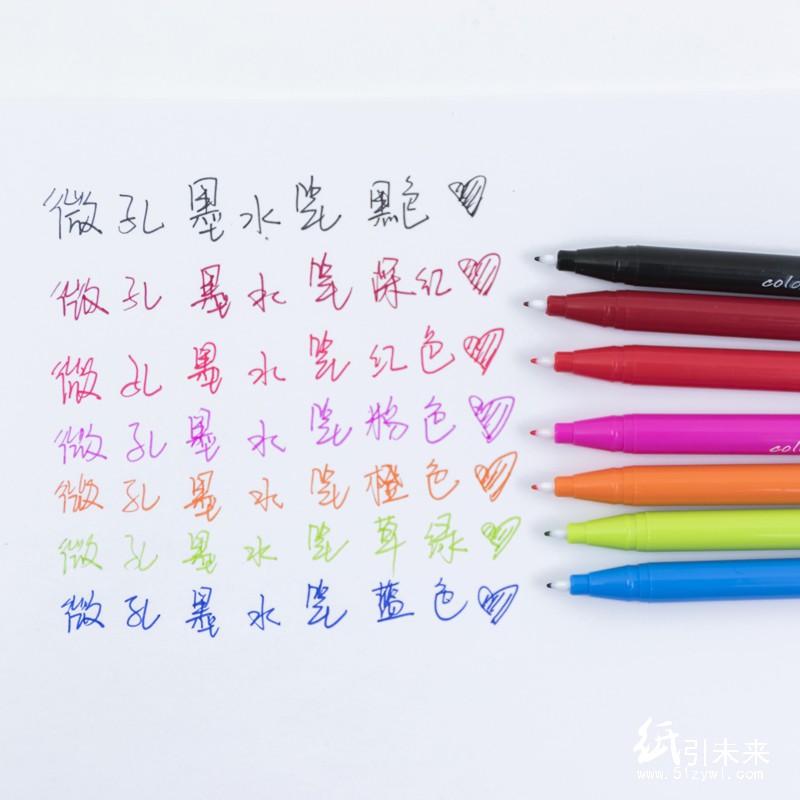 微孔墨水笔 黑色
微孔墨水笔 深红
微孔墨水笔 红色
微孔墨水笔 粉色
微孔墨水笔 橙色
微孔墨水笔 草绿
微孔墨水笔 蓝色
colo
colo
纸引未来
www.51zywl.com